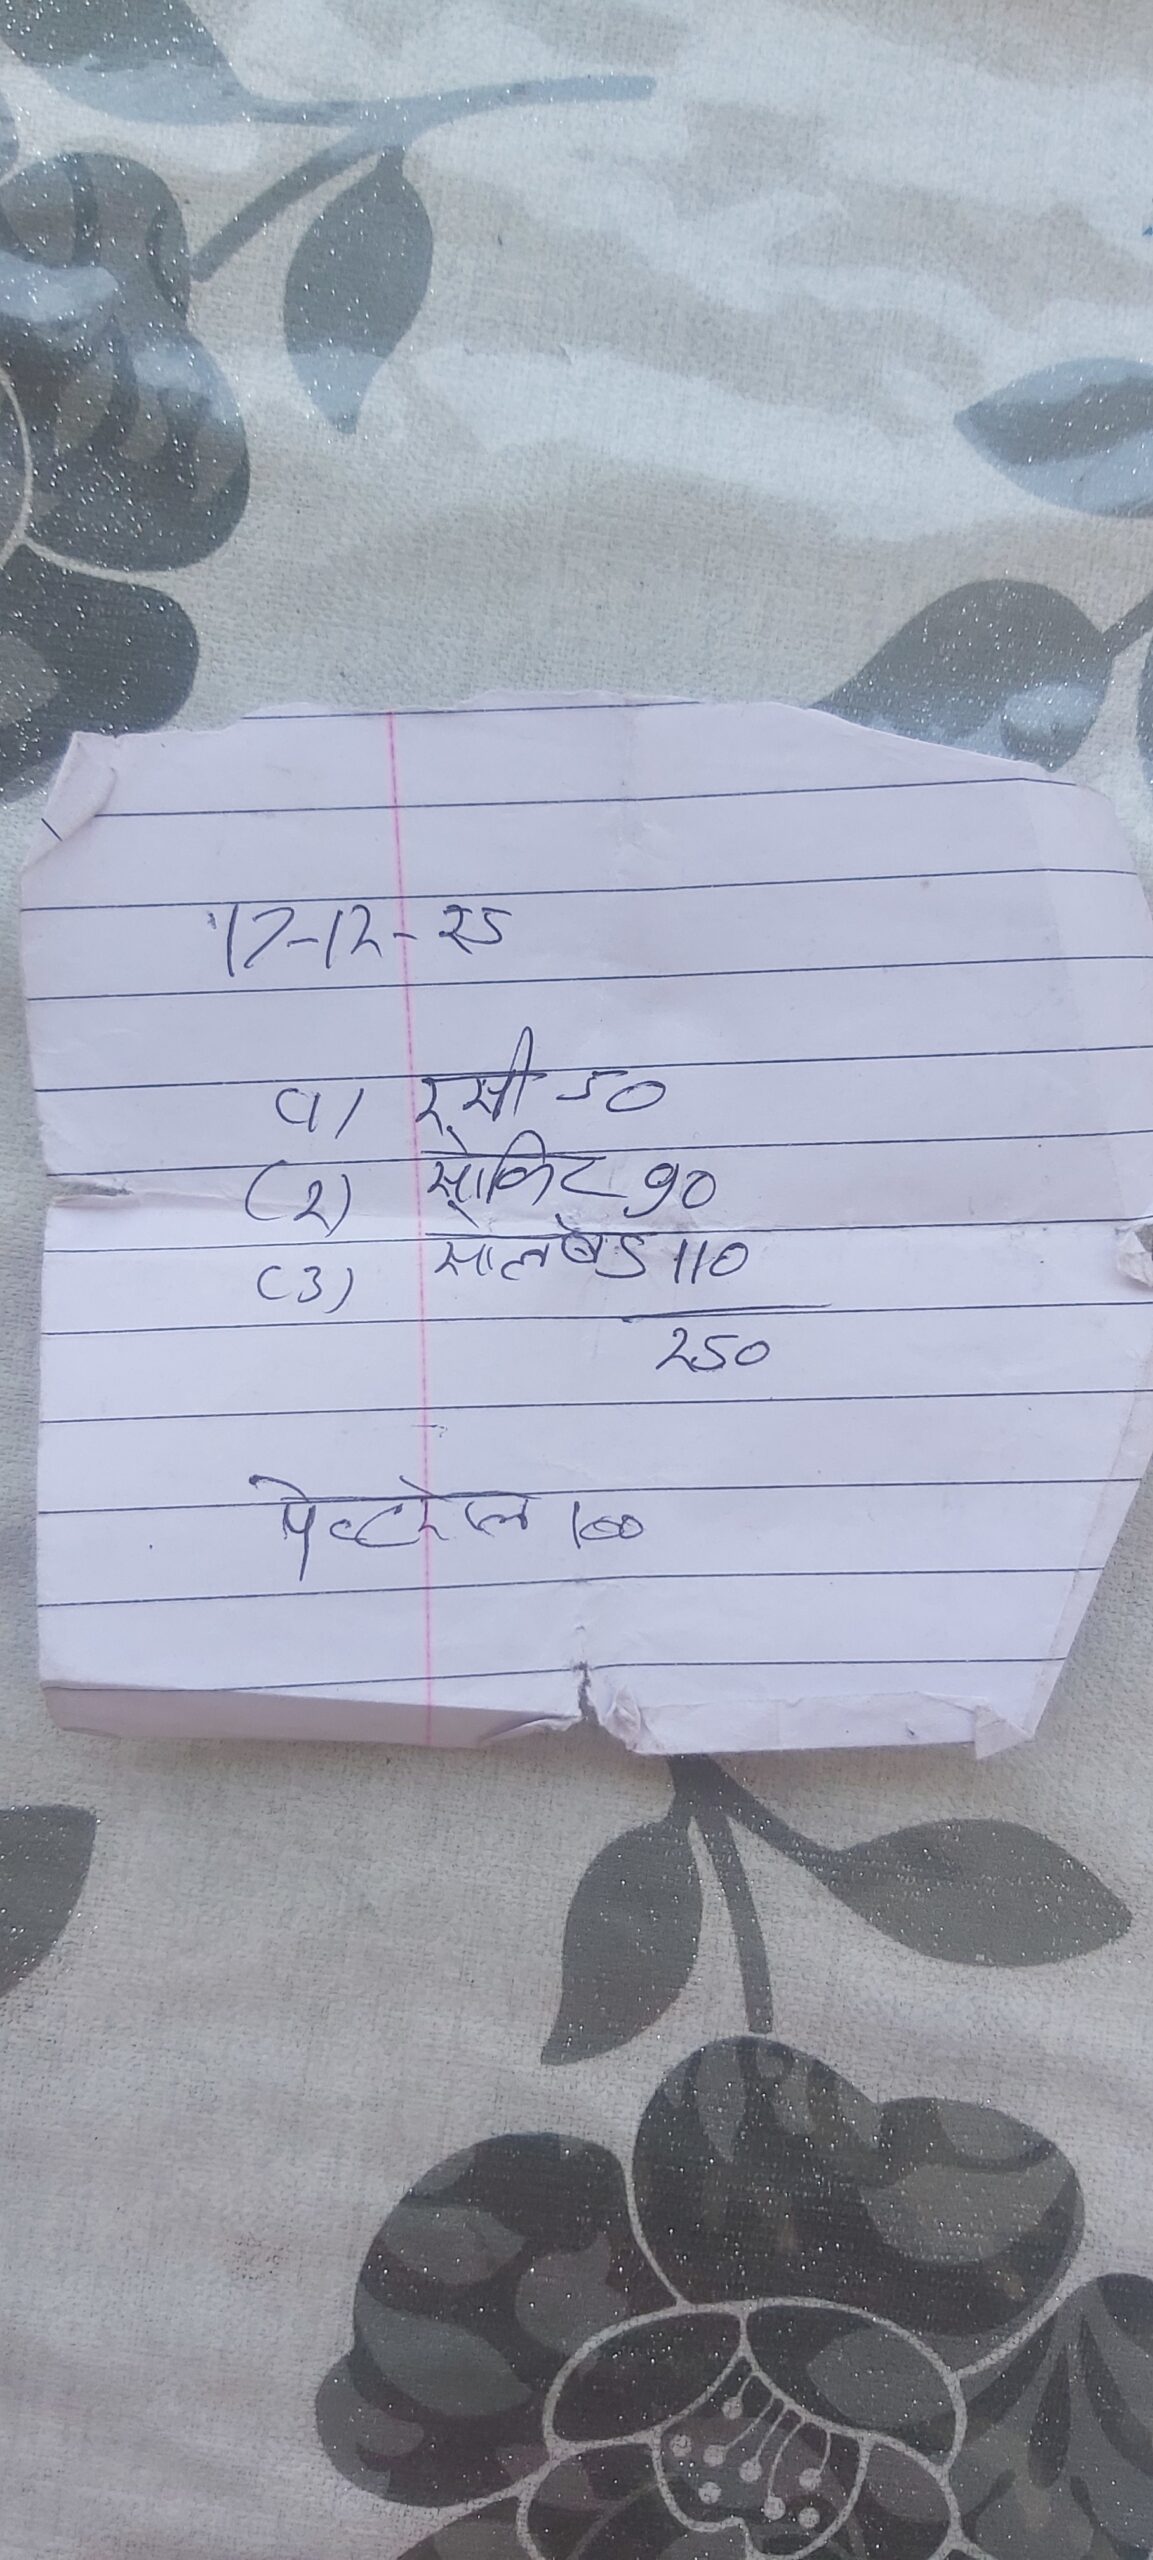 17-12-25
(1) रसी 50
(2) सोकिट 90
(3) सोलबैड 110
250
पेट्रोल 100